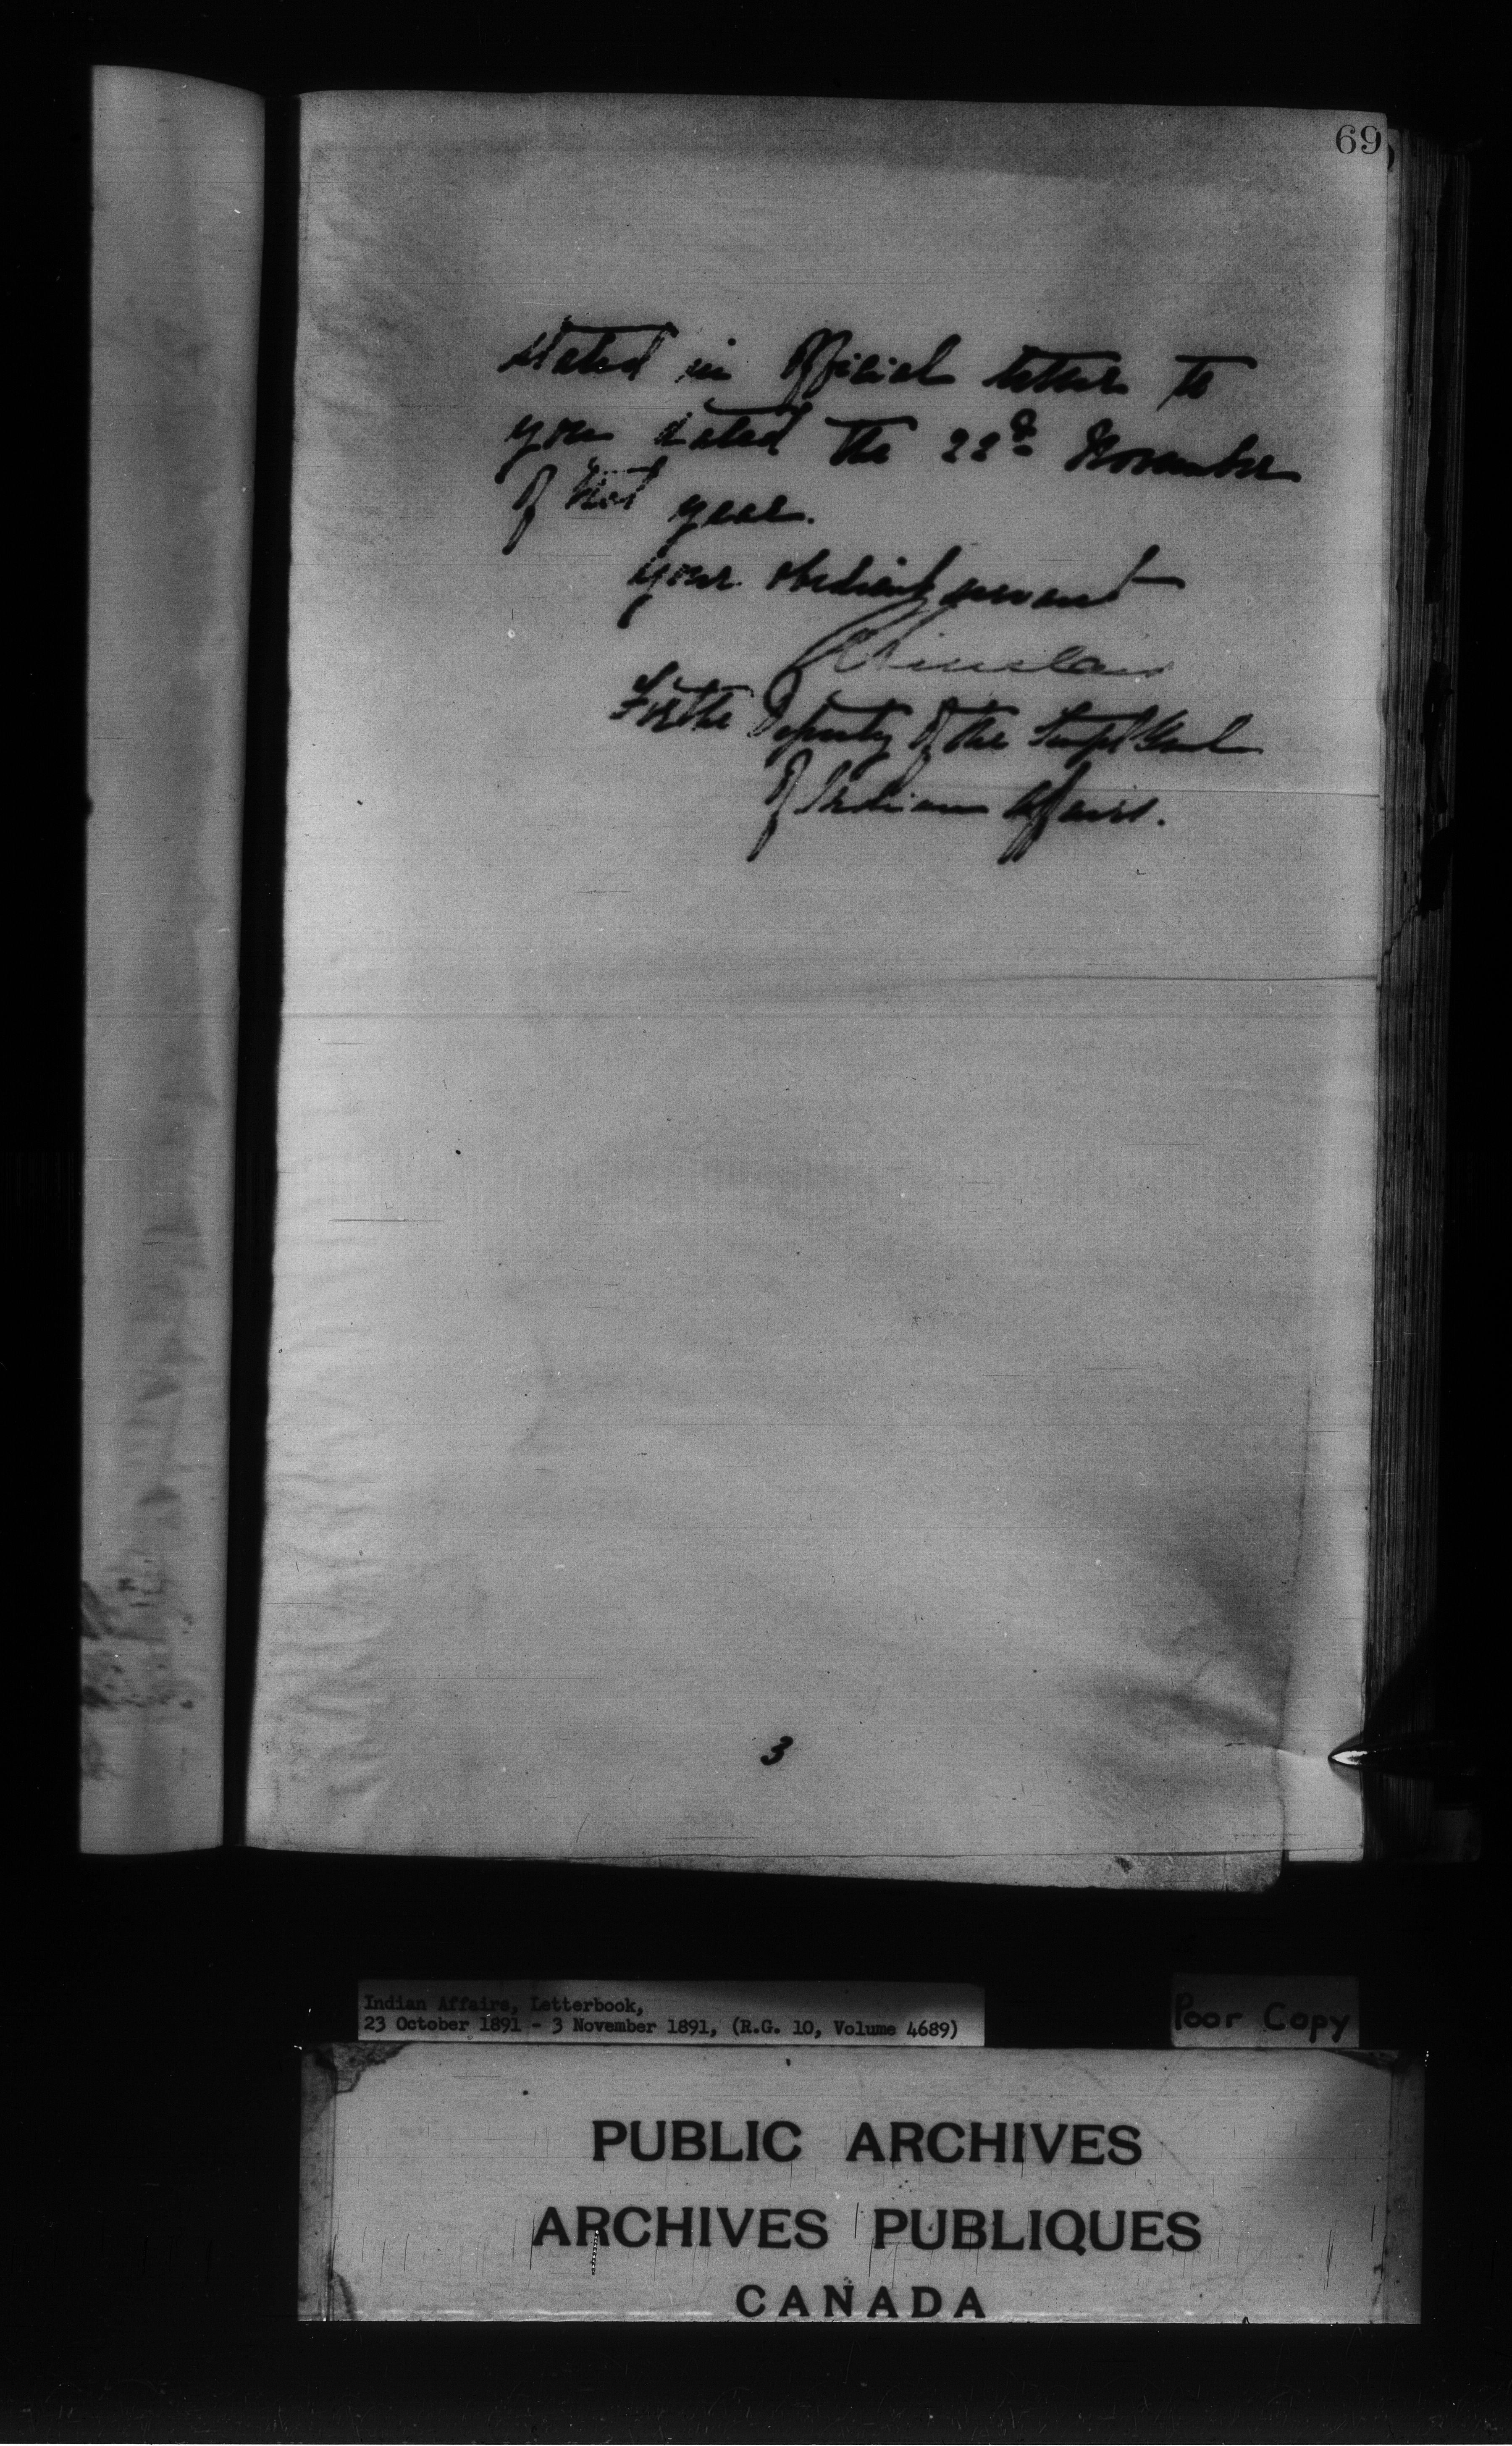 69
stated in Official letter to
you dated the 22d November
of that year.
Your obedient servant
Sinclair
For the Deputy of the Supt Genl
of Indian Affairs.
3
Indian Affairs, Letterbook,
23 October 1891 - 3 November 1891, (R.G. 10, Volume 4689)
Poor Copy
PUBLIC ARCHIVES
ARCHIVES PUBLIQUES
CANADA